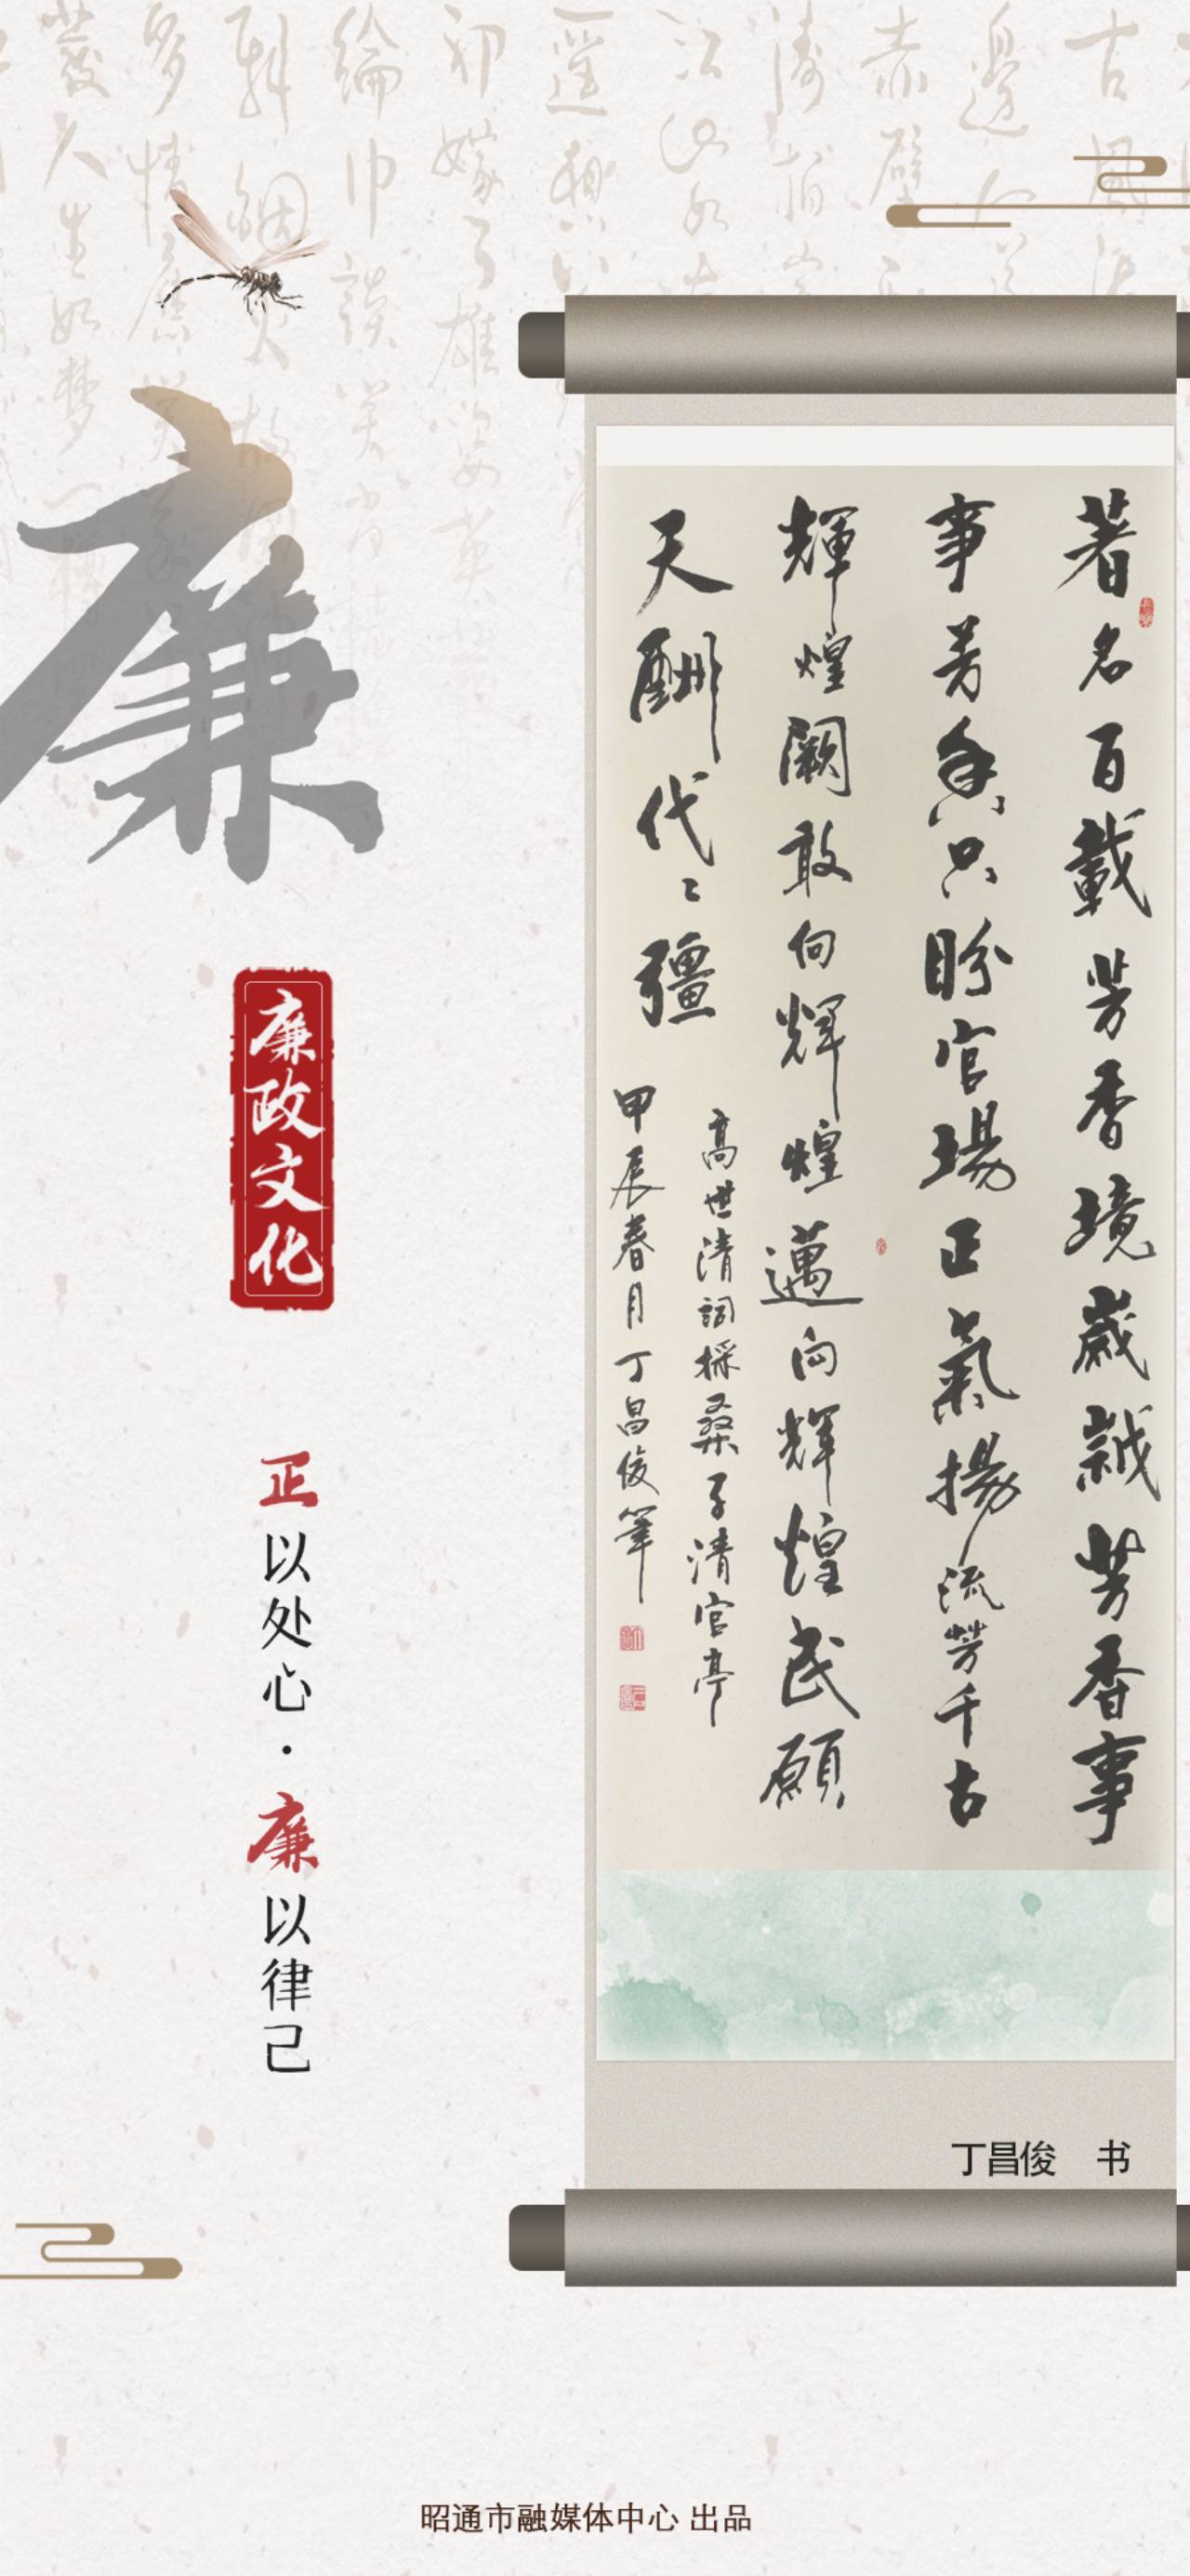 廉
廉政文化
正以处心·廉以律己
著名百載芳香境歲芳香事
事芳香只盼官場正氣揚流芳千古
輝煌闕敢向輝煌邁向輝煌民願
天酬代〻疆
高世清詞採桑子清官亭
甲辰春月丁昌俊筆
丁昌俊 书
昭通市融媒体中心 出品